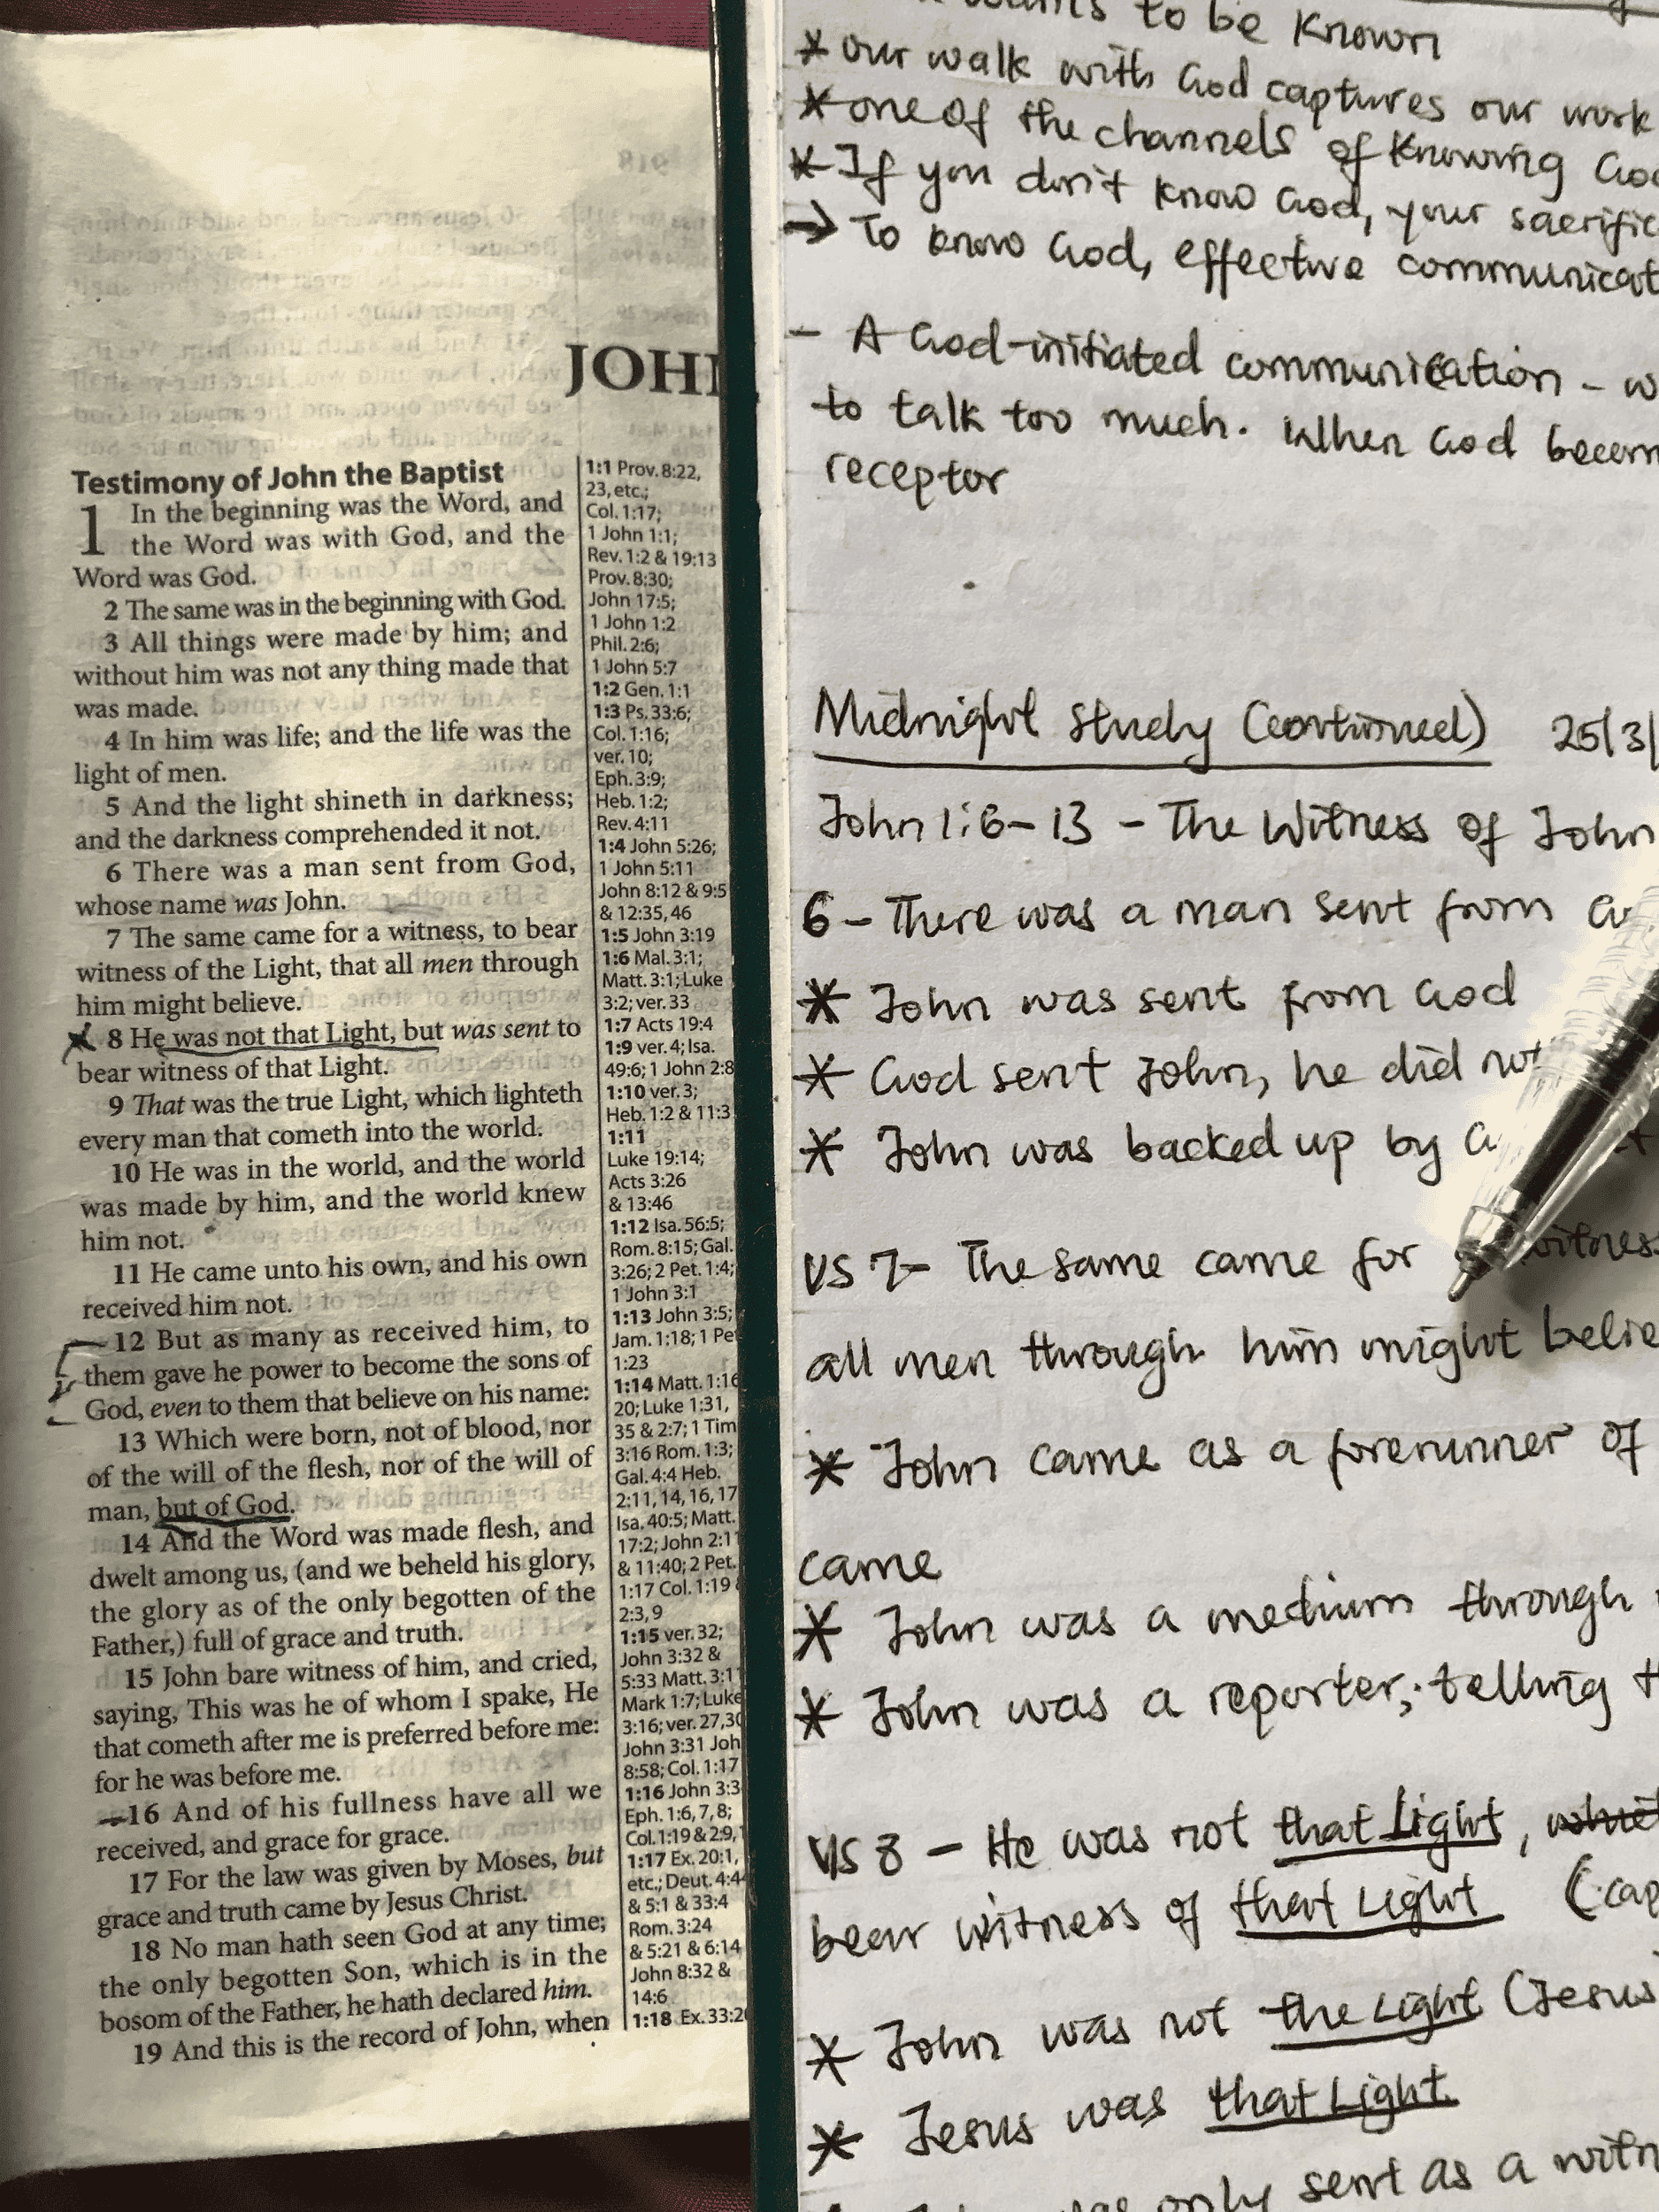 JOH
Testimony of John the Baptist
1 In the beginning was the Word, and
the Word was with God, and the
Word was God.
2 The same was in the beginning with God.
3 All things were made by him; and
without him was not any thing made that
was made.
4 In him was life; and the life was the
light of men.
5 And the light shineth in darkness;
and the darkness comprehended it not.
6 There was a man sent from God,
whose name was John.
7 The same came for a witness, to bear
witness of the Light, that all men through
him might believe.
8 He was not that Light, but was sent to
bear witness of that Light.
9 That was the true Light, which lighteth
every man that cometh into the world.
10 He was in the world, and the world
was made by him, and the world knew
him not.
11 He came unto his own, and his own
received him not.
12 But as many as received him, to
them gave he power to become the sons of
God, even to them that believe on his name:
13 Which were born, not of blood, nor
of the will of the flesh, nor of the will of
man, but of God.
14 And the Word was made flesh, and
dwelt among us, (and we beheld his glory,
the glory as of the only begotten of the
Father,) full of grace and truth.
15 John bare witness of him, and cried,
saying, This was he of whom I spake, He
that cometh after me is preferred before me:
for he was before me.
16 And of his fullness have all we
received, and grace for grace.
17 For the law was given by Moses, but
grace and truth came by Jesus Christ.
18 No man hath seen God at any time;
the only begotten Son, which is in the
bosom of the Father, he hath declared him.
19 And this is the record of John, when
1:1 Prov. 8:22,
23, etc.;
Col. 1:17;
1 John 1:1;
Rev. 1:2 & 19:13
Prov. 8:30;
John 17:5;
1 John 1:2
Phil. 2:6;
1 John 5:7
1:2 Gen. 1:1
1:3 Ps. 33:6;
Col. 1:16;
ver. 10;
Eph. 3:9;
Heb. 1:2;
Rev. 4:11
1:4 John 5:26;
1 John 5:11
John 8:12 & 9:5
& 12:35, 46
1:5 John 3:19
1:6 Mal. 3:1;
Matt. 3:1; Luke
3:2; ver. 33
1:7 Acts 19:4
1:9 ver. 4; Isa.
49:6; 1 John 2:8
1:10 ver. 3;
Heb. 1:2 & 11:3
1:11
Luke 19:14;
Acts 3:26
& 13:46
1:12 Isa. 56:5;
Rom. 8:15; Gal.
3:26; 2 Pet. 1:4;
1 John 3:1
1:13 John 3:5;
Jam. 1:18; 1 Pe
1:23
1:14 Matt. 1:16
20; Luke 1:31,
35 & 2:7; 1 Tim
3:16 Rom. 1:3;
Gal. 4:4 Heb.
2:11, 14, 16, 17
Isa. 40:5; Matt.
17:2; John 2:11
& 11:40; 2 Pet.
1:17 Col. 1:19
2:3, 9
1:15 ver. 32;
John 3:32 &
5:33 Matt. 3:11
Mark 1:7; Luke
3:16; ver. 27, 30
John 3:31 Joh
8:58; Col. 1:17
1:16 John 3:3
Eph. 1:6, 7, 8;
Col. 1:19 & 2:9,
1:17 Ex. 20:1,
etc.; Deut. 4:4
& 5:1 & 33:4
Rom. 3:24
& 5:21 & 6:14
John 8:32 &
14:6
1:18 Ex. 33:20
to be known
* our walk with God captures our work
* one of the channels of knowing God
* If you don't know God, your sacrific
→ To know God, effective communicat
- A God-initiated communication - w
to talk too much. When God becom
receptor
Midnight Study (continued) 25/3/
John 1:6-13 - The Witness of John
6 - There was a man sent from G
* John was sent from God
* God sent John, he did not
* John was backed up by
VS 7- The same came for witness
all men through him might belie
* John came as a forerunner of
came
* John was a medium through
* John was a reporter, telling t
VS 8 - He was not that Light,
bear witness of that Light (cap
* John was not the Light (Jesus
* Jesus was that Light
only sent as a witn